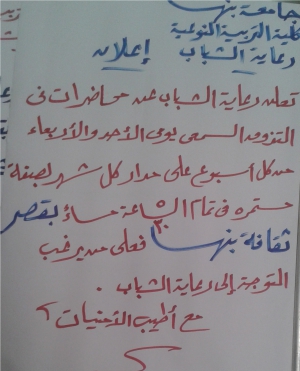 جامعة بنها
كلية التربية النوعية
رعاية الشباب إعلان
تعلن رعاية الشباب عن محاضرات فى
التذوق السمعى يومى الأحد والأربعاء
من كل أسبوع على مدار كل شهر بصفة
مستمره فى تمام الساعة ٥٫٣٠ مساءً بقصر
ثقافة بنها فعلى من يرغب
التوجة إلى رعاية الشباب .
مع أطيب الأمنيات ؟